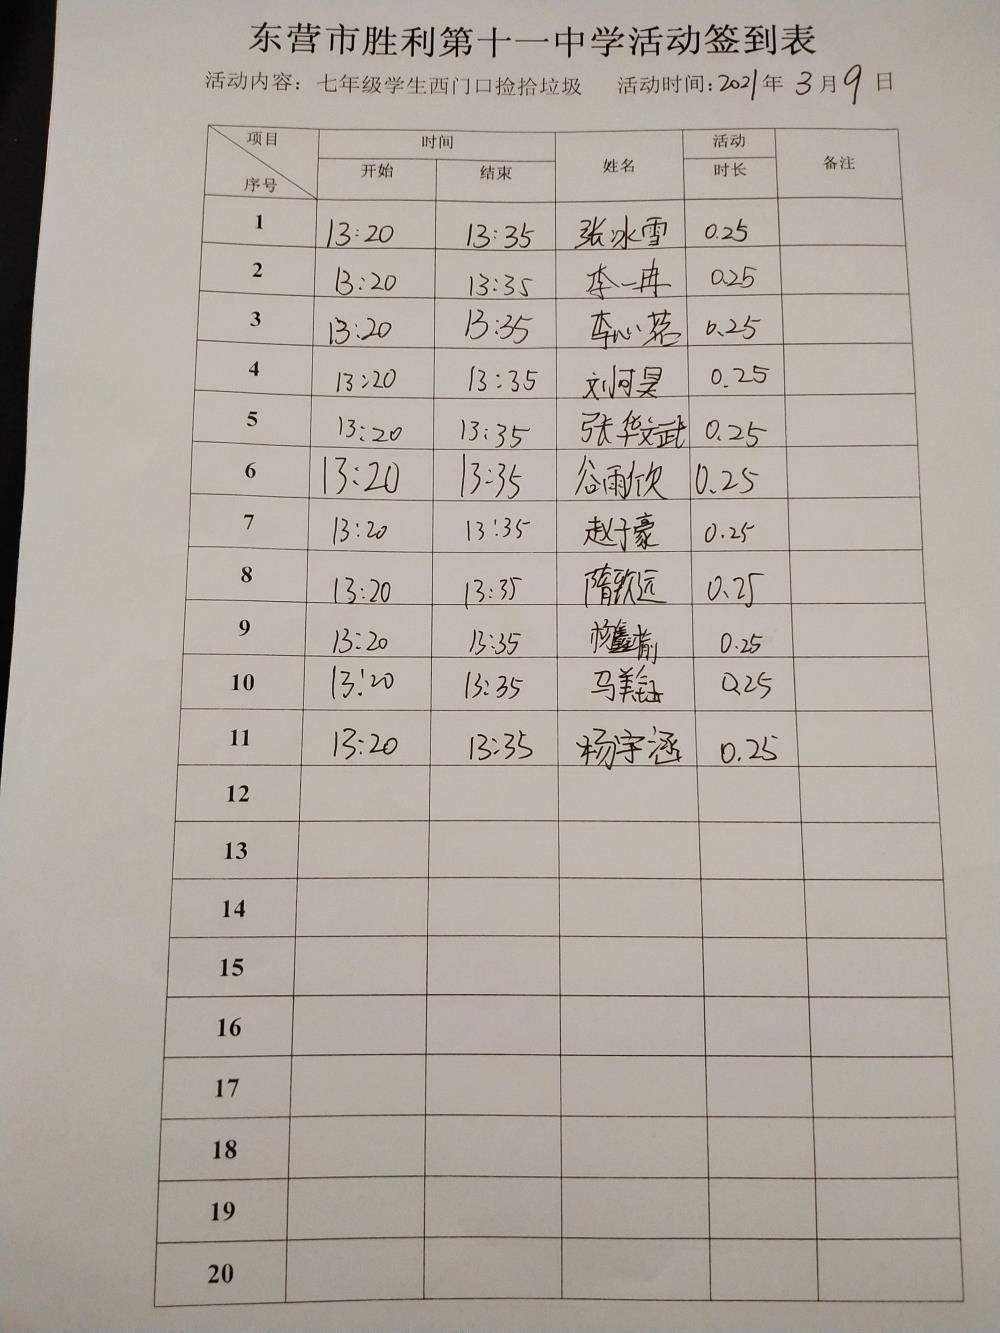 东营市胜利第十一中学活动签到表
活动内容：七年级学生西门口捡拾垃圾 活动时间：2021年3月9日
项目 时间 姓名 活动 备注
序号 开始 结束 时长
1 13:20 13:35 张冰雪 0.25
2 13:20 13:35 李一冉 0.25
3 13:20 13:35 李心茗 0.25
4 13:20 13:35 刘何昊 0.25
5 13:20 13:35 张华文武 0.25
6 13:20 13:35 谷雨欣 0.25
7 13:20 13:35 赵子豪 0.25
8 13:20 13:35 隋致远 0.25
9 13:20 13:35 0.25
10 13:20 13:35 马美钰 0.25
11 13:20 13:35 杨宇涵 0.25
12
13
14
15
16
17
18
19
20